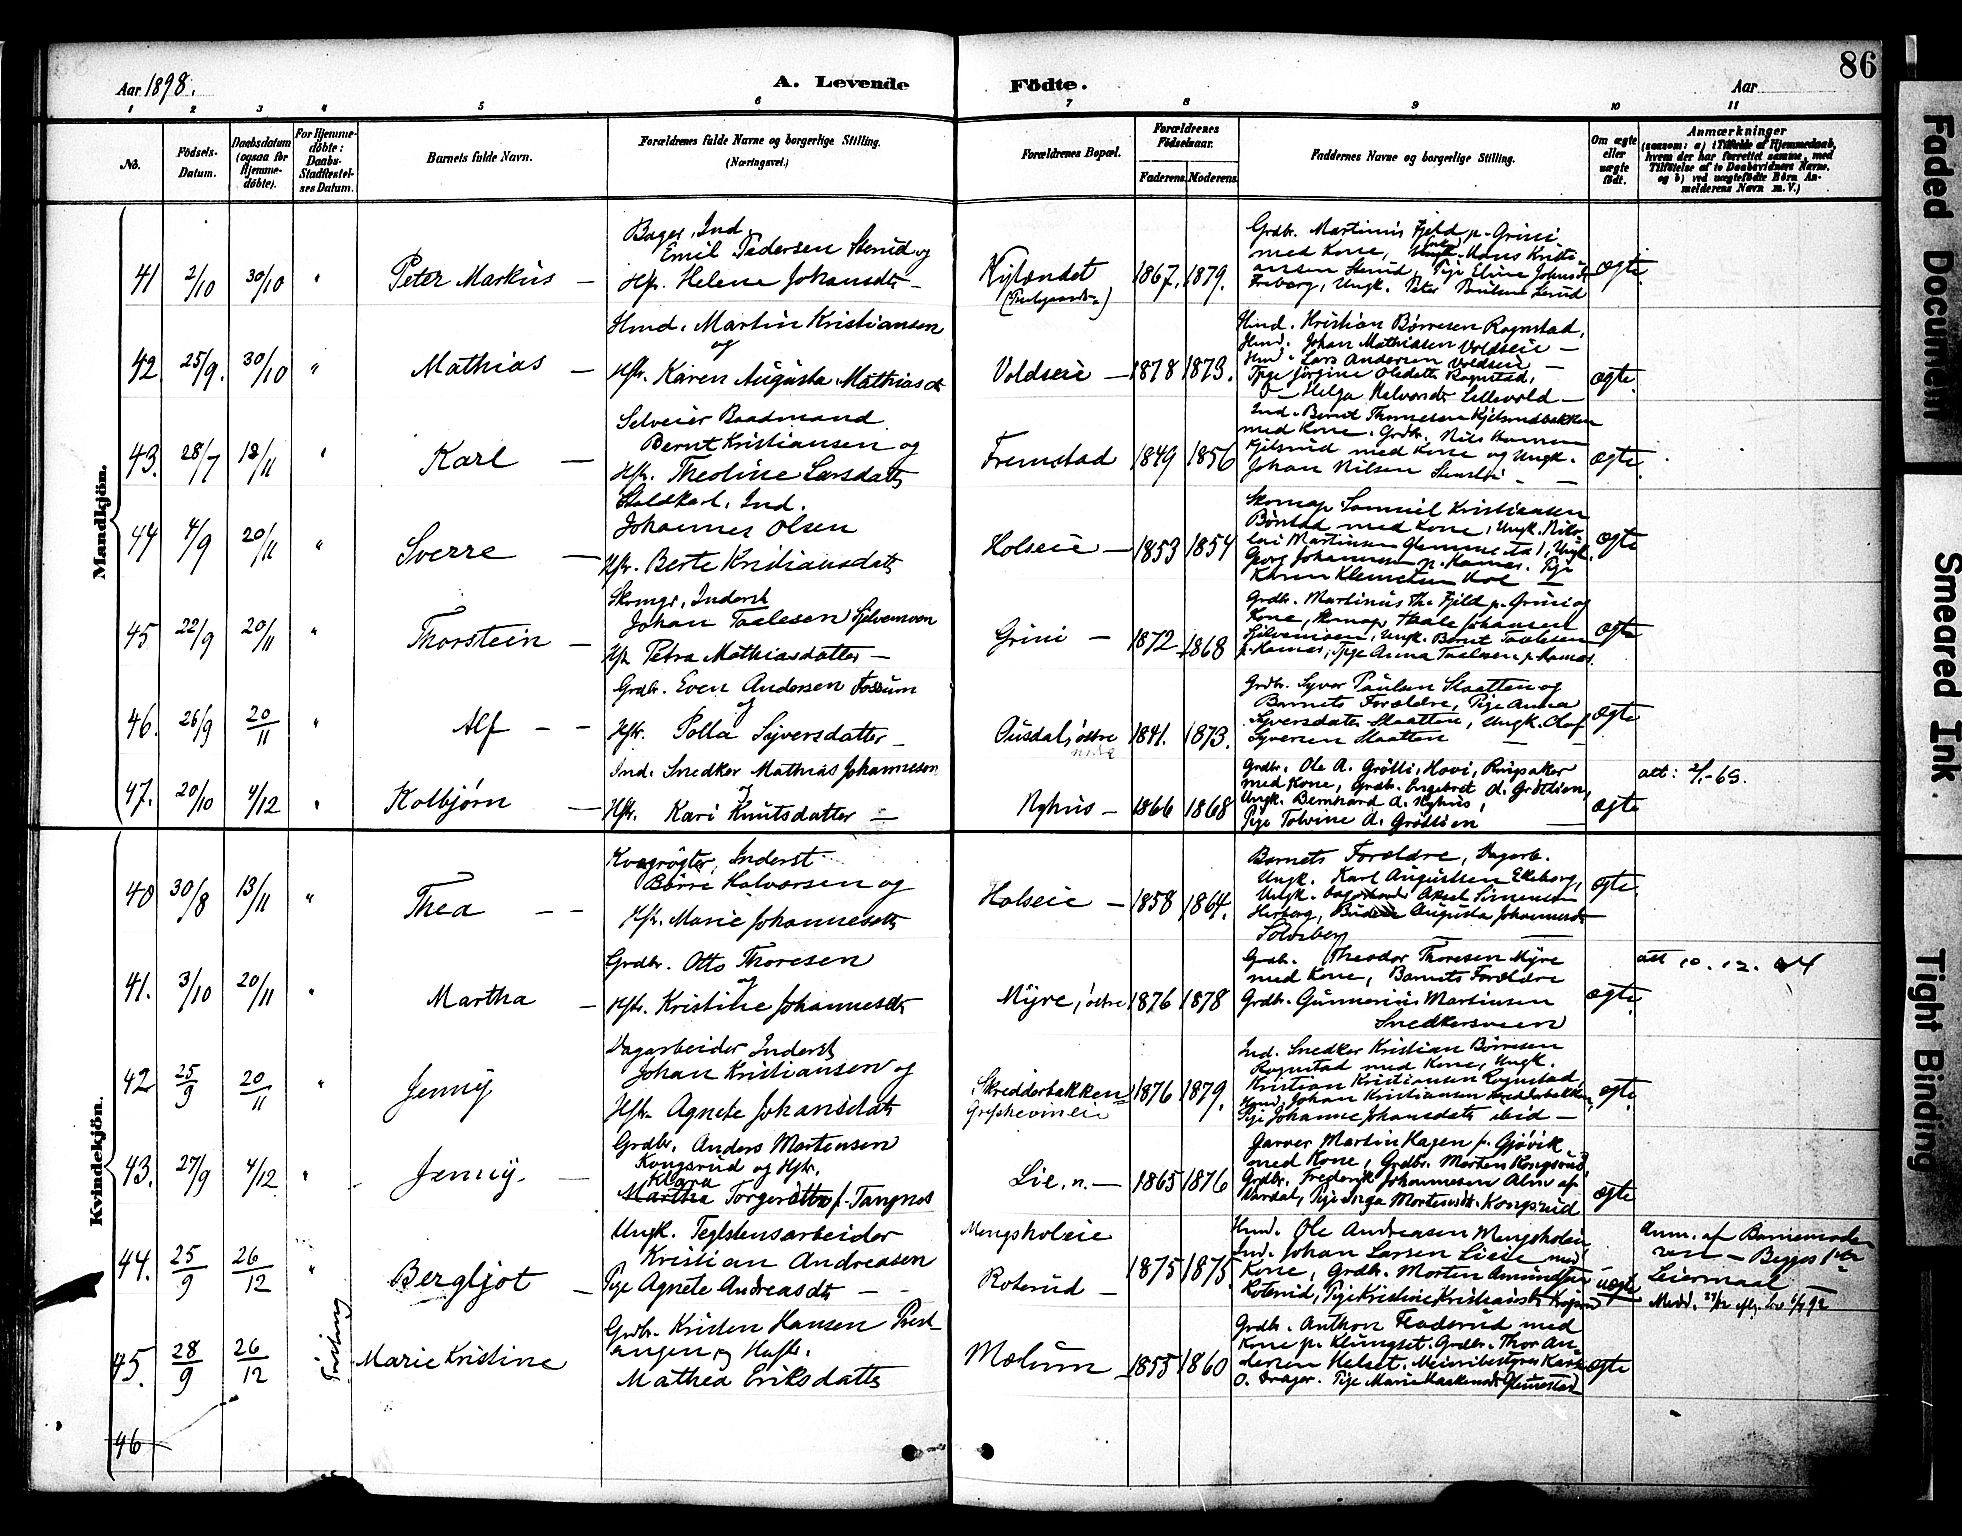 Aar 1898.
A. Levende
Födte.
Aar
86
1 2 3 4 5 6 7 8 9 10 11
No.
Födsels-
Datum.
Daabsdatum
(ogsaa for
Hjemme-
döbte).
For Hjemme-
döbte:
Daabs-
Stadfæstel-
ses Datum.
Barnets fulde Navn.
Forældrenes fulde Navne og borgerlige Stilling.
(Næringsvei.)
Forældrenes Bopæl.
Forældrenes
Födselsaar.
Faderens. Moderens.
Faddernes Navne og borgerlige Stilling.
Om ægte
eller
uægte
födt.
Anmærkninger
(saasom: a) i Tilfælde af Hjemmedaab,
hvem der har forrettet samme, med
Tilföielse af to Daabsvidners Navne,
og b) ved uægtefödte Börn An-
melderens Navn m. V.)
Mandkjön.
41 2/10 30/10 " Peter Markus —
Bager, Ind.
Emil Pedersen Stenud og
Hfr. Helene Johansdtr —
1867. 1879.
Grdbr. Martinus Fjeld p. Grini
med Kone, Hans Kristi-
ansen Stenud, Pige Eline Johnsdtr
Ungk. Peter Paulsen
ægte.
42. 25/9. 30/10 " Mathias —
Hmd. Martin Kristiansen
og
Hfr. Karen Augusta Mathiasdtr
Voldseie — 1878 1873.
Hmd. Kristian Børresen Rognstad,
Hmd. Johan Mathiasen Voldseie —
Hmd. Lars Andersen Voldseie —
Pige Jørgine Olsdatter Rognstad,
Helga Halvorsdtr Lillevold —
ægte.
43. 28/7 13/11 " Karl —
Selveier Baadmand
Bernt Kristiansen og
Hfr. Theoline Larsdatter
Fremstad 1849 1856
Ind. Bernt Thomesen Kjelsrudbakken
med Kone. Grdbr. Nils Hansen
Kjelsrud med Kone og Ungk.
Johan Nilsen
ægte.
44 4/9 20/11 " Sverre —
Staldkarl, Ind.
Johannes Olsen
Hfr. Berte Kristiansdatter
Holseie — 1853 1854
Skomag. Samuel Kristiansen
Børstad med Kone, Ungk. Niko-
lai Martinsen Glemmestad, Ungk.
Georg Johannesen p. Kames. Pige
Karen Klemetsen Hol —
ægte.
45 22/9 20/11 " Thorstein —
Skomgr, Inderst
Johan Taalesen Sølvemoen
Hfr Petra Mathiasdatter —
Grini — 1872 1868
Grdbr. Martinus Th. Fjeld p. Grini og
Kone, Skomag. Johansen
Sølvemoen, Ungk. Bernt Taalesen
p. Kames, Pige Anna Taalesen p. Kames.
ægte
46. 26/9 20/11 " Alf — —
Grdbr. Even Andersen Fossum
og
Hfr. Polla Syversdatter —
Ausdal, østre
nedre 1841. 1873.
Grdbr. Syver Paulsen Slaatten og
Barnets Forældre, Pige Anna
Syversdatter Slaatten, Ungk. Olaf
Syversen Slaatten —
ægte
47. 20/10 4/12 " Kolbjørn —
Ind. Snedker Mathias Johannesen
og
Hfr. Kari Knutsdatter —
Nyhus — 1866 1868
Grdbr. Ole A. Grøtli, Hovi, Ringsaker
med Kone, Grdbr. Engebret A. Grøtlien,
Ungk. Bernhard A. Nyhus,
Pige Tolvine A. Grøtlien —
ægte
att: 2/1-65.
Kvindekjön.
40 30/8 13/11 " Thea — —
Kvægrøgter, Inderst
Børre Halvorsen og
Hfr. Marie Johannesdtr
Holseie — 1858 1864.
Barnets Forældre, Dagarb.
Ungk. Karl Augustsen Ekeborg,
Ungk. Aksel Simensen
Herborg, Budeie Augusta Johannesdtr
Solsberg —
ægte
41. 3/10 20/11 " Martha —
Grdbr. Otto Thoresen
og
Hfr. Kristine Johannesdtr
Myre, østre 1876 1878
Grdb. Theodor Thoresen Myre
med Kone, Barnets Forældre
Grdbr. Gunnerius Martinsen
Snedkersveen
ægte.
att 10.12.44
42 25/9 20/11 " Jenny
Dagarbeider Inderst
Johan Kristiansen og
Hfr. Agnete Johansdatter
Skredderbakken
1876 1879.
Ind. Snedker Kristian Børresen
Rognstad med Kone, Ungk.
Kristian Kristiansen Rognstad,
Hmd. Johan Kristiansen Skredderbakken,
Pige Johanne Johansdatter ibid —
ægte.
43. 27/9 4/12 " Jenny. —
Grdbr. Anders Martensen
Kongsrud og Hfr.
Klara
Martha Torgersdtr f. Tangnes
Lie, n. — 1865 1876
Garver Martin Hagen f. Gjøvik
med Kone, Grdbr. Morten Kongsrud,
Grdbr. Frederik Johannesen Alm af
Vardal, Pige Inga Mortensdtr. Kongsrud
ægte
44. 25/9 26/12 " Bergljot —
Ungk. Teglstensarbeider
Kristian Andreasen
Pige Agnete Andreasdtr — —
Mengsholeie
Roterud — 1875 1875.
Hmd. Ole Andreasen Mengsholeie
Ind. Johan Larsen Lieeie med
Kone, Grdbr. Morten Amundsen
Roterud, Pige Kristine Kristiansdtr
uægte
Anm. af Barnemode-
ren — Begges 1ste
Leiermaal —
45. 28/9 26/12 Marie Kristine
Grdbr. Kristen Hansen Prest-
angen og Husfr.
Mathea Eriksdatter
Mælum — 1855 1860
Grdbr. Anthon Fladerud med
Kone p. Klungset. Grdbr. Thor An-
dersen Helset. Meieribestyrer Karl
O. Drager. Pige Marie Haakensdtr Glemestad
ægte
46
Faded Document
Smeared Ink.
Tight Binding